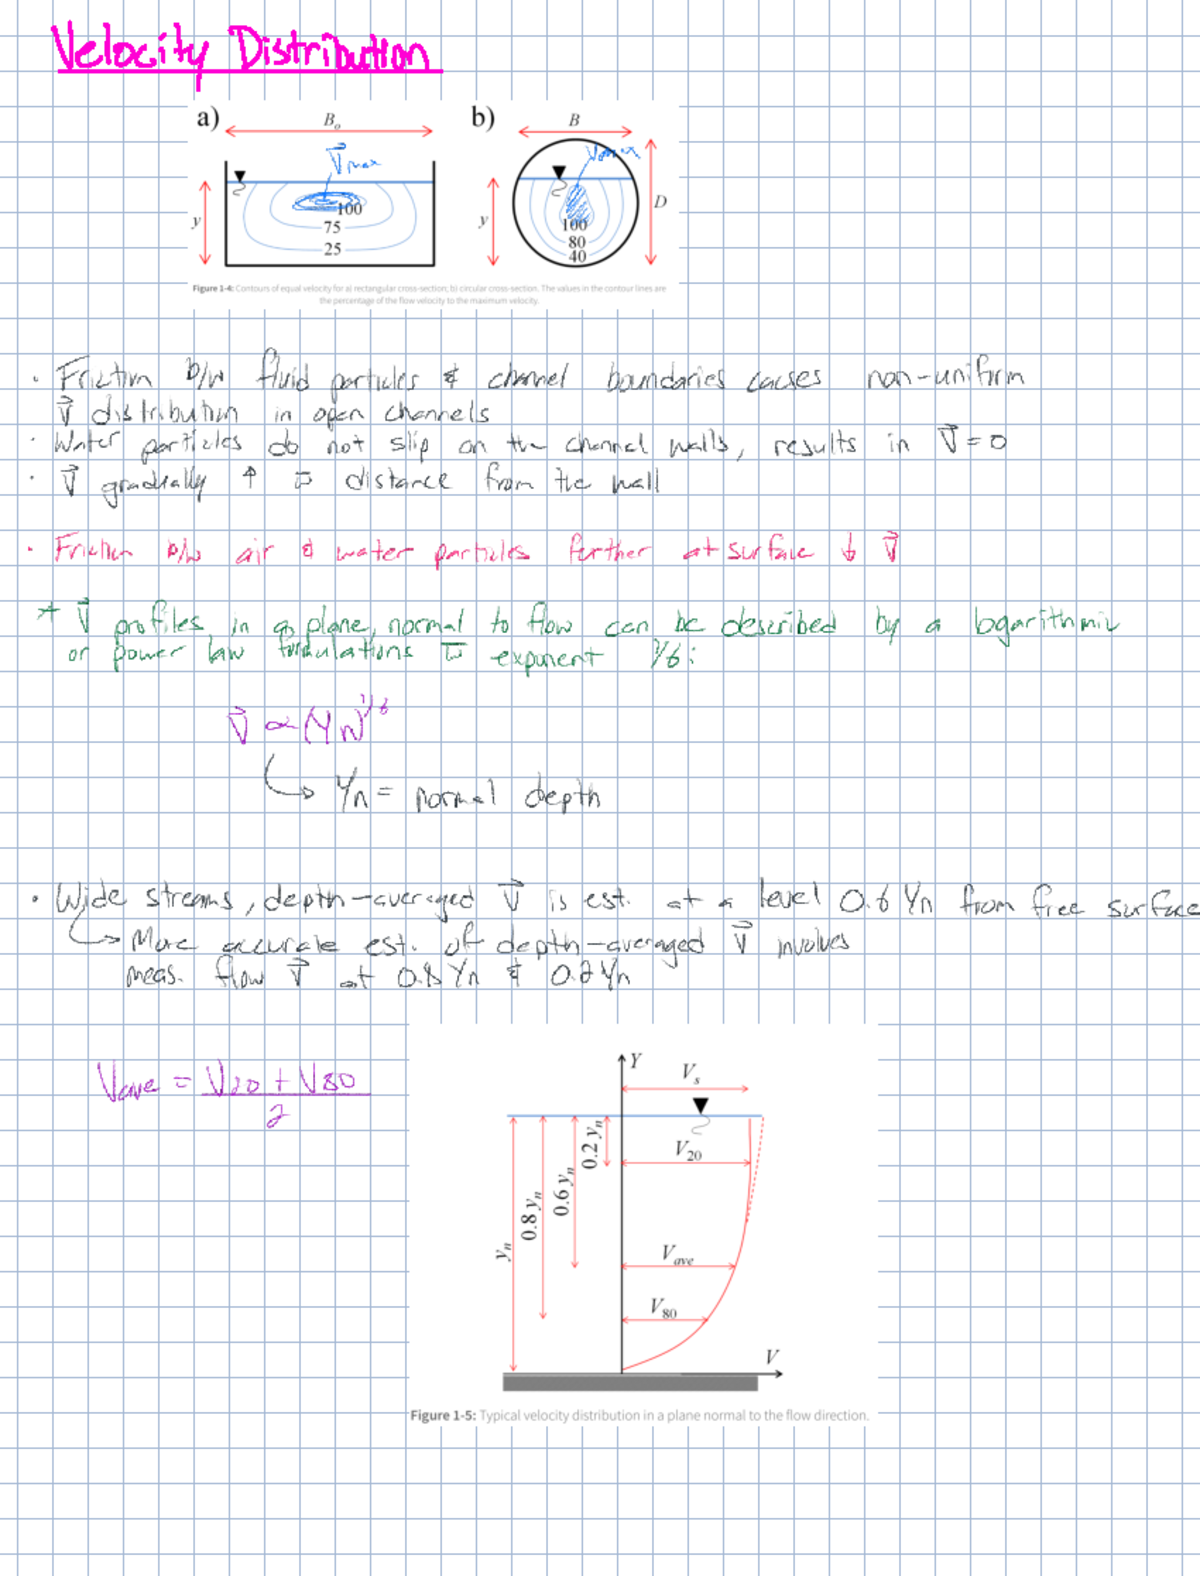 Velocity Distribution
a)
B₀
b)
B
V⃗max
Vmax
y
100
75
25
y
100
80
40
D
Figure 1-4: Contours of equal velocity for a) rectangular cross-section; b) circular cross-section. The values in the contour lines are
the percentage of the flow velocity to the maximum velocity.
· Friction b/w fluid particles & channel boundaries causes non-uniform
V⃗ distribution in open channels
· Water particles do not slip on the channel walls, results in V⃗ = 0
· V⃗ gradually ↑ w̄ distance from the wall
· Friction b/w air & water particles further at surface ↓ V⃗
* V⃗ profiles in a plane, normal to flow can be described by a logarithmic
or power law formulations w̄ exponent 1/6:
V⃗ ∝ (Yn)^1/6
↳ Yn = normal depth
· Wide streams, depth-averaged V⃗ is est. at a level 0.6 Yn from free surface
↳ More accurate est. of depth-averaged V⃗ involves
meas. flow V⃗ at 0.8 Yn & 0.2 Yn
Vave = V20 + V80
2
Y
Vs
yn
0.8 yn
0.6 yn
0.2 yn
V20
Vave
V80
V
Figure 1-5: Typical velocity distribution in a plane normal to the flow direction.